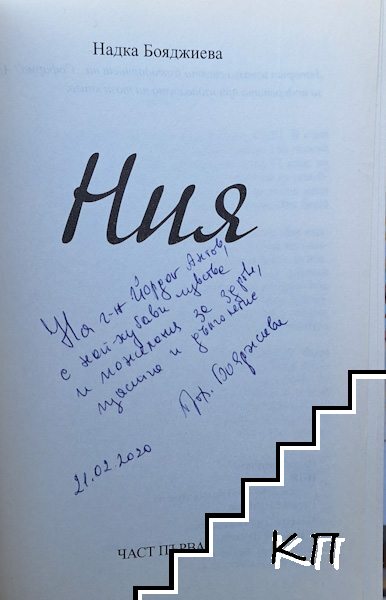 Надка Бояджиева
Ния
На г-н Йордан Ангов,
с най-хубави чувства
и пожелания за здраве,
щастие и дълголетие
Бояджиева
21.02.2020
ЧАСТ ПЪРВА
КП